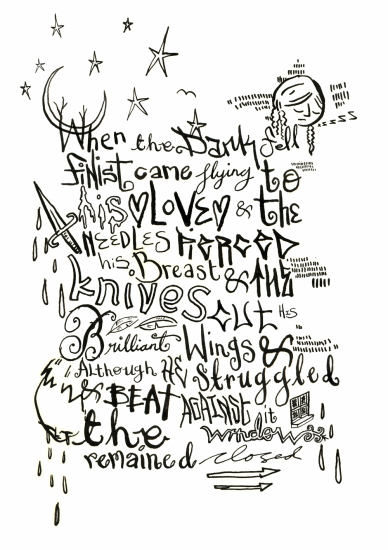 When the Dark fell
finist came flying to
his LOVE & the
NEEDLES PIERCED
his Breast & THE
knives CUT HIS
Brilliant Wings &
Although HE Struggled
& BEAT AGAINST it
the windows
remained closed
zzzz